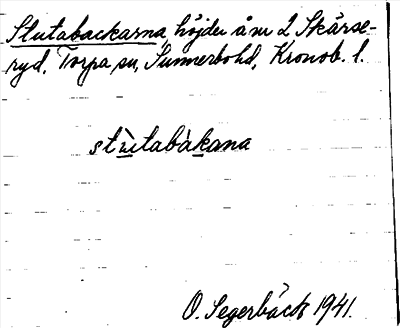 Slutabackarna, höjder å nr 2 Skärse-
ryd, Torpa sn, Sunnerbohd, Kronob. l.
stu̲̇tabàk̲ana
O. Segerbäck 1941.